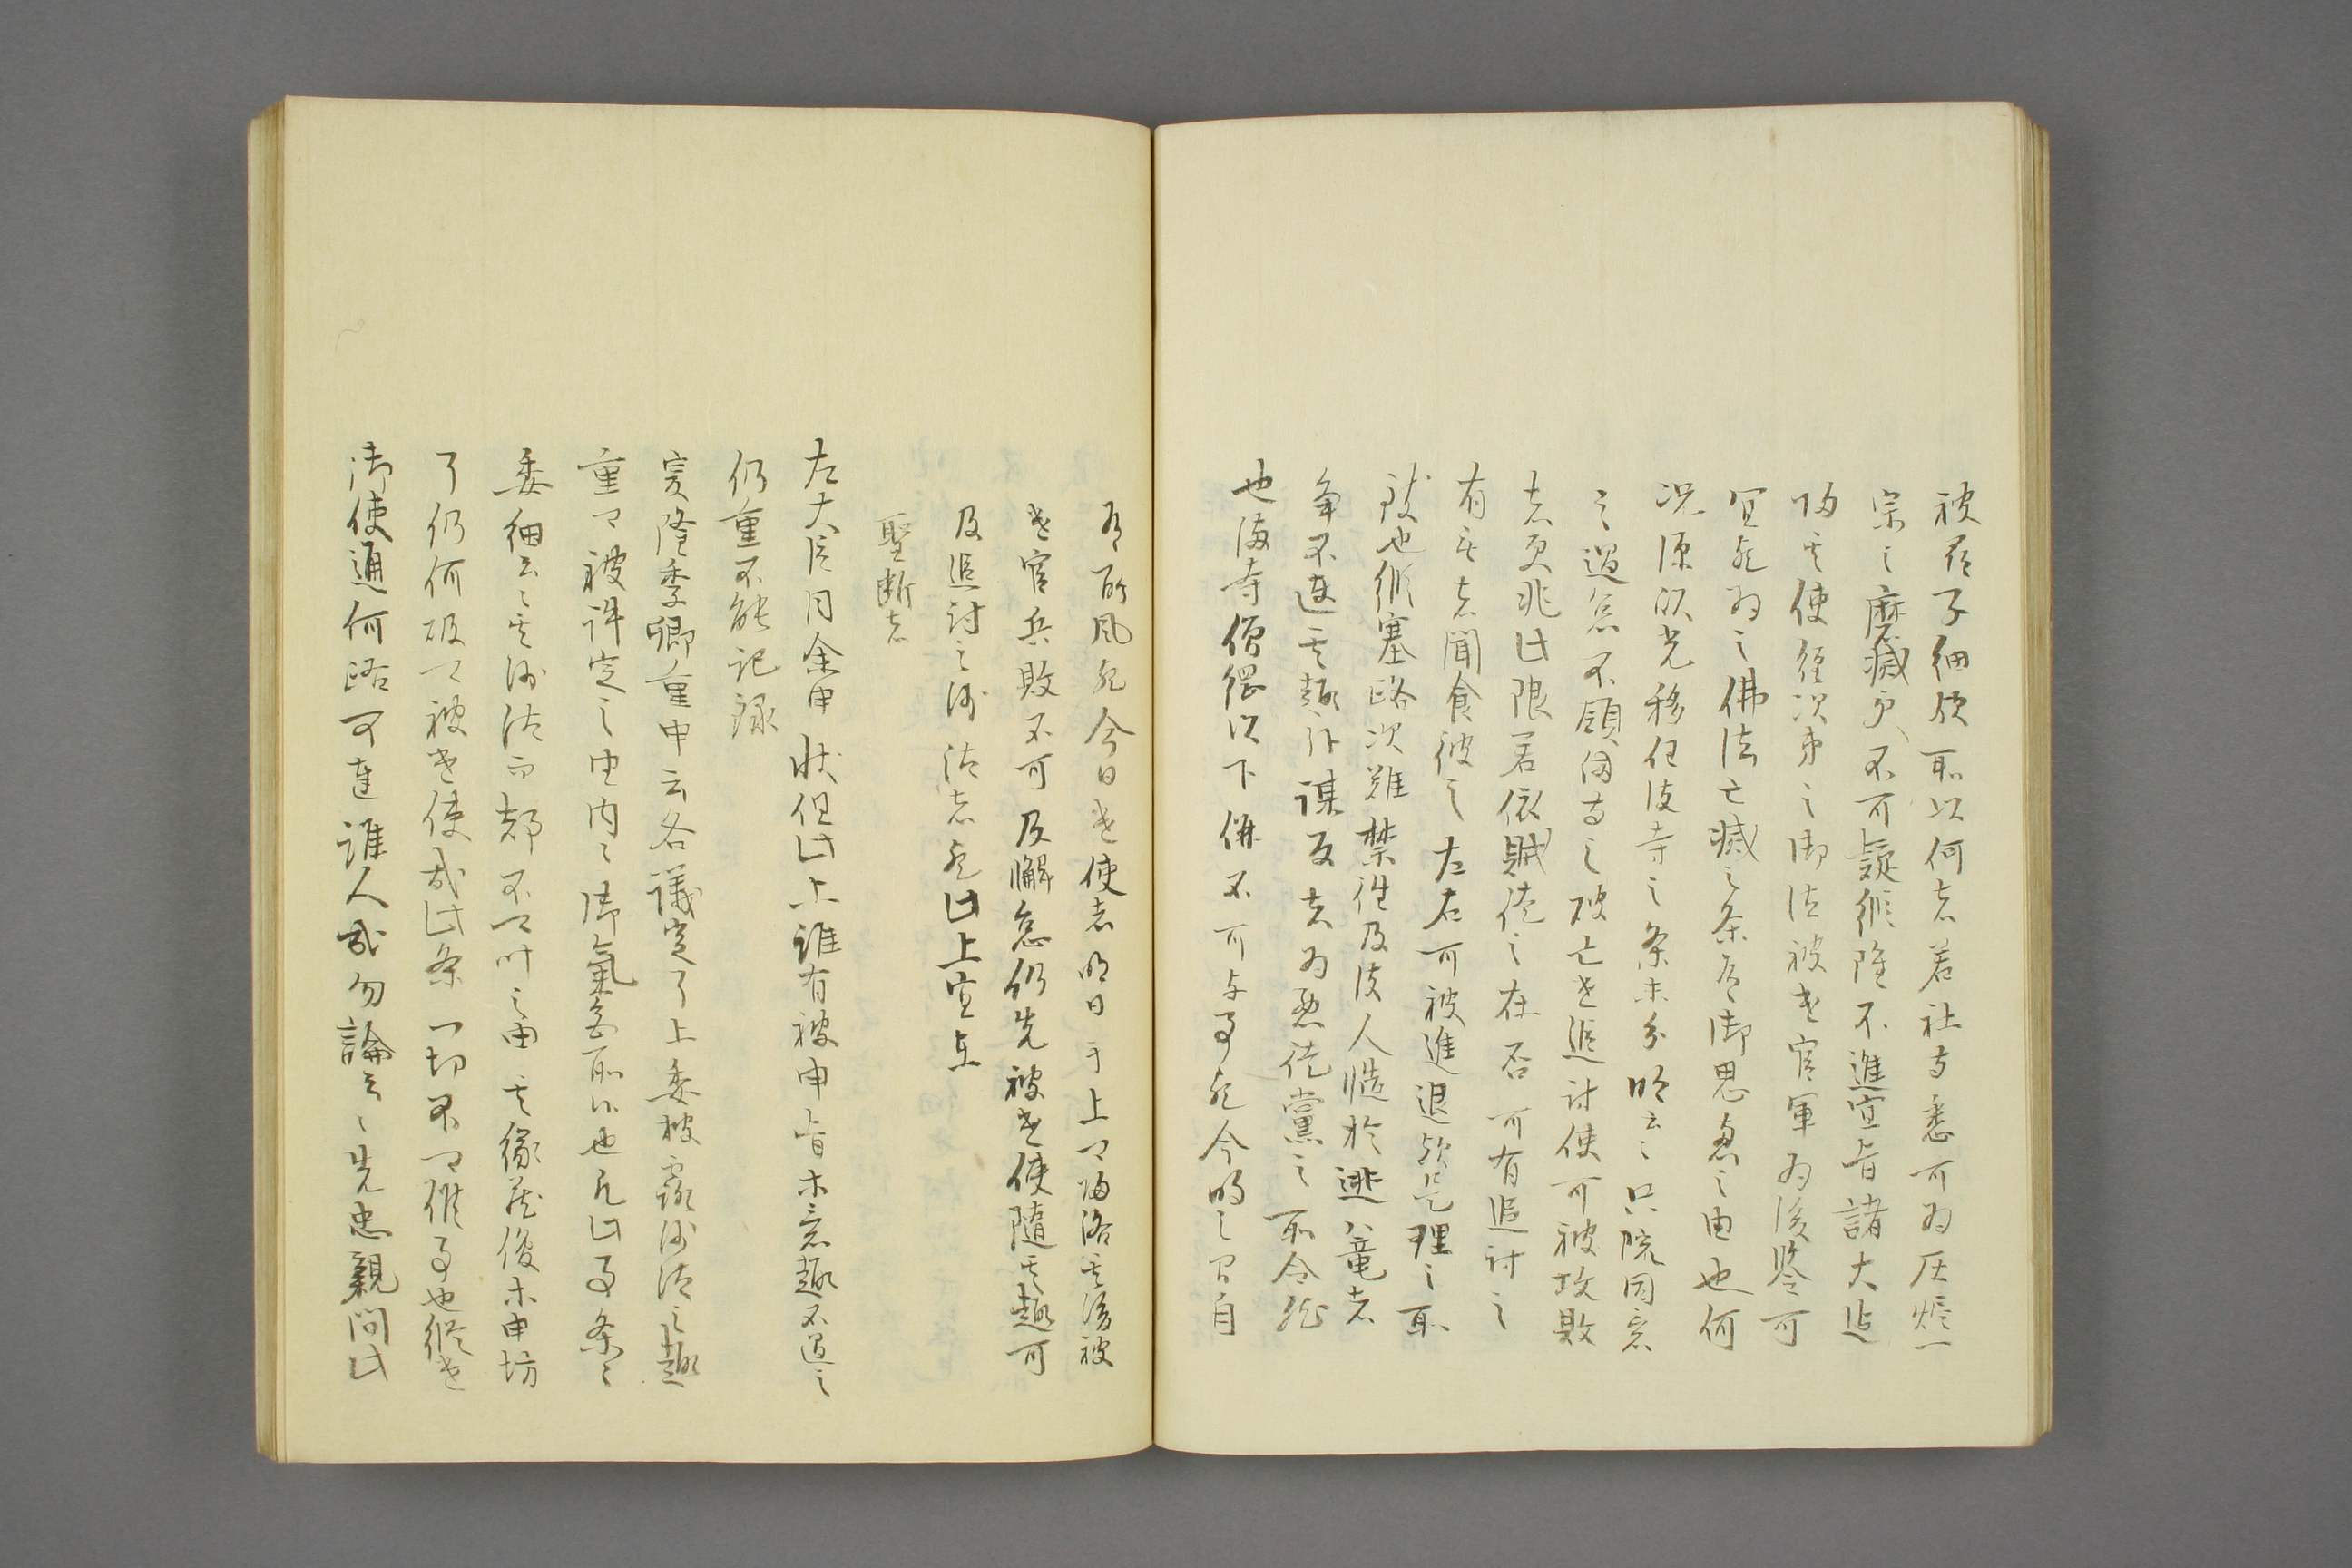 被尽子細歟所以何者若社寺悉可為灰燼一
宗之磨滅更不可疑縦雖不進宣旨諸大迫
帰其使経次第之御沙汰被遣官軍為後鑒可
宜歟為之佛法亡滅之条尽御思慮之由也何
況源以光移住彼寺之条未分明云々只院因意
之過怠不顧両寺之破亡遣追討使可被攻敗
者更非此限若依賊徒之在否可有追討之
有無者聞食彼之左右可被進退歟是理之所
致也縦塞路次雖禁往及彼人愷於逃篭者
争不達其趣外謀反者為悪徒黨之所令然
也満寺僧侶以下併不可与事歟今明之間自
有所風聞今日遣使者明日予上可帰洛其後被
遣官兵敗不可及懈怠仍先被遣使隨其趣可
及追討之沙汰者歟此上宜在
聖断者
左大臣同余申状但此上誰有被申旨未意趣不過之
仍重不能記録
爰隆季卿重申云各議定了上委被露沙汰之趣
重可被評定之由内々御氣色所候也凡此事条々
委細云々其沙汰而都不可叶之由其縁蔵俊等申切
了仍何故可被遣使哉此条一切不可候事也縦遣
御使通何路可達誰人哉勿論云々先忠親問此